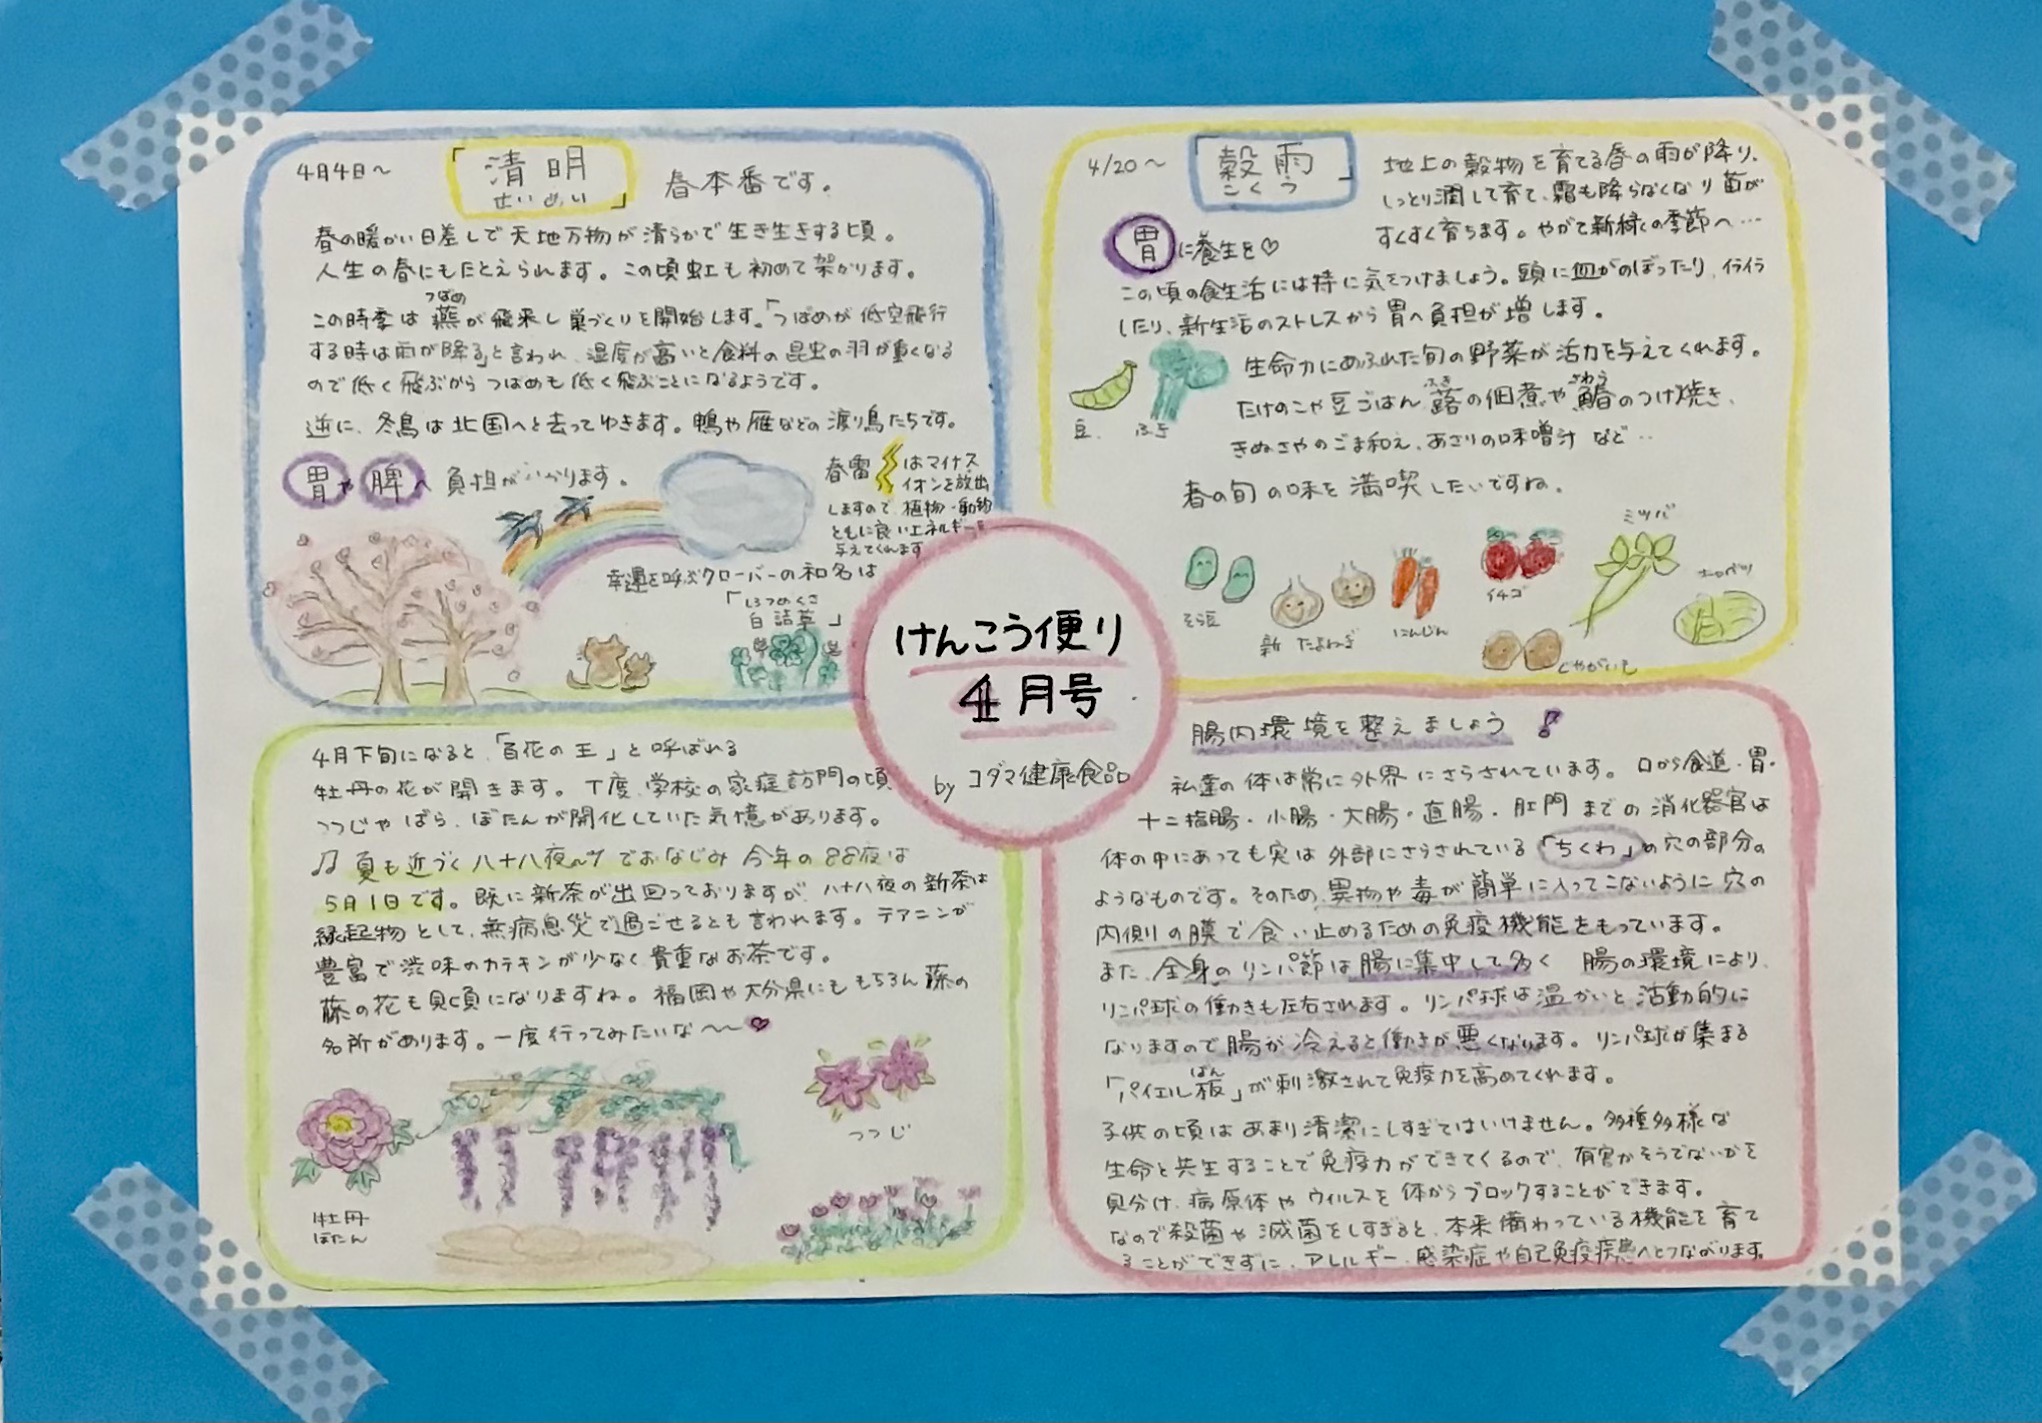 4月4日〜
「清明
せいめい」
春本番です。
春の暖かい日差しで天地万物が清らかで生き生きする頃。
人生の春にもたとえられます。この頃虹も初めて架かります。
つばめ
この時季は燕が飛来し巣づくりを開始します。「つばめが低空飛行
する時は雨が降る」と言われ、湿度が高いと食料の昆虫の羽が重くなる
ので低く飛ぶからつばめも低く飛ぶことになるようです。
逆に、冬鳥は北国へと去ってゆきます。鴨や雁などの渡り鳥たちです。
胃や脾へ負担がかかります。
春雷はマイナス
イオンを放出
しますので植物・動物
ともに良いエネルギーを
与えてくれます
幸運を呼ぶクローバーの和名は
「しろつめくさ
白詰草」
4/20〜
「穀雨」
こくう
地上の穀物を育てる春の雨が降り、
しっとり潤して育て、霜も降らなくなり苗が
すくすく育ちます。やがて新緑の季節へ…
胃に養生を♡
この頃の食生活には特に気をつけましょう。頭に血がのぼったり、イライラ
したり、新生活のストレスから胃へ負担が増します。
生命力にあふれた旬の野菜が活力を与えてくれます。
ふき さわら
たけのこや豆ごはん、蕗の佃煮や鰆のつけ焼き、
きぬさやのごま和え、あさりの味噌汁など‥
春の旬の味を満喫したいですね。
豆
ふき
そら豆
新たまねぎ
にんじん
イチゴ
じゃがいも
ミツバ
キャベツ
けんこう便り
4月号
by コダマ健康食品
4月下旬になると、「百花の王」と呼ばれる
牡丹の花が開きます。丁度、学校の家庭訪問の頃
つつじやばら、ぼたんが開化していた気憶があります。
♫ 夏も近づく八十八夜〜♪でおなじみ 今年の88夜は
5月1日です。既に新茶が出回っておりますが、八十八夜の新茶は
縁起物として、無病息災で過ごせるとも言われます。テアニンが
豊富で渋味のカテキンが少なく貴重なお茶です。
藤の花も見頃になりますね。福岡や大分県にももちろん藤の
名所があります。一度行ってみたいな〜〜♥
牡丹
ぼたん
つつじ
腸内環境を整えましょう♪
私達の体は常に外界にさらされています。口から食道・胃・
十二指腸・小腸・大腸・直腸・肛門までの消化器官は
体の中にあっても実は外部にさらされている「ちくわ」の穴の部分の
ようなものです。そのため、異物や毒が簡単に入ってこないように穴の
内側の膜で食い止めるための免疫機能をもっています。
また、全身のリンパ節は腸に集中して多く 腸の環境により、
リンパ球の働きも左右されます。リンパ球は温かいと活動的に
なりますので腸が冷えると働きが悪くなります。リンパ球が集まる
ばん
「パイエル板」が刺激されて免疫力を高めてくれます。
子供の頃はあまり清潔にしすぎてはいけません。多種多様な
生命と共生することで免疫力ができてくるので、有害かそうでないかを
見分け、病原体やウィルスを体からブロックすることができます。
なので殺菌や滅菌をしすぎると、本来備わっている機能を育て
ることができずに、アレルギー、感染症や自己免疫疾患へとつながります。